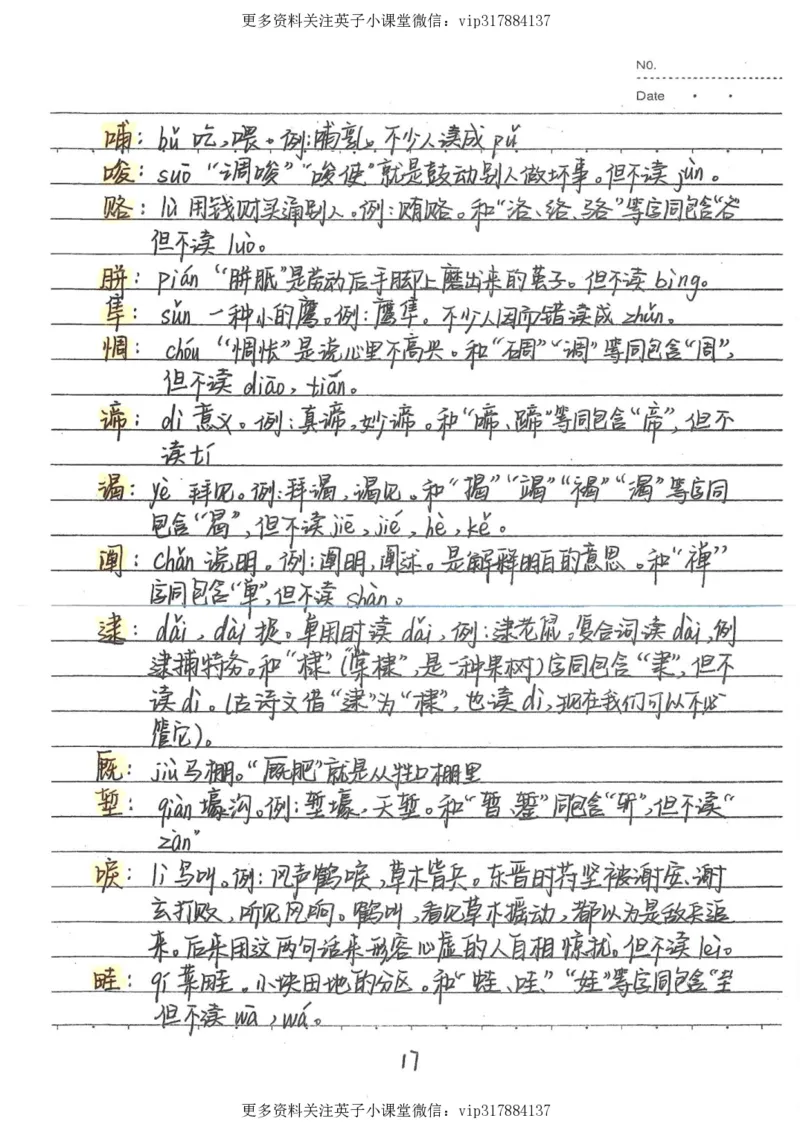 更多资料关注英子小课堂微信：vip317884137
NO.
Date
哺：bǔ 吃，喂。例：哺乳。不少人读成 pǔ
唆：suō “调唆”“唆使”就是鼓动别人做坏事。但不读 jùn。
赂：lù 用钱财买通别人。例：贿赂。和“洛、络、骆”等字同包含“各”
但不读 luò。
胼：pián “胼胝”是劳动后手脚上磨出来的茧子。但不读 bìng。
隼：sǔn 一种小的鹰。例：鹰隼。不少人因而错读成 zhǔn。
惆：chóu “惆怅”是说心里不高兴。和“碉”“调”等同包含“周”，
但不读 diāo，tiǎn。
谛：dì 意义。例：真谛，妙谛。和“啼、蹄”等同包含“帝”，但不
读tí
谒：yè 拜见。例：拜谒，谒见。和“揭”“竭”“褐”“渴”等字同
包含“曷”，但不读 jiē，jié，hè，kě。
阐：chǎn 说明。例：阐明，阐述。是解释明白的意思。和“禅”
字同包含“单”，但不读 shàn。
逮：dǎi，dài 捉。单用时读 dǎi，例：逮老鼠。复合词读 dài，例
逮捕特务。和“棣”（“棠棣”，是一种果树）字同包含“隶”，但不
读 dì。（古诗文借“逮”为“棣”，也读 dì，现在我们可以不必
管它）。
厩：jiù 马棚。“厩肥”就是从牲口棚里
堑：qiàn 壕沟。例：堑壕，天堑。和“暂、錾”同包含“斩”，但不读“
zàn”
唳：lì 鸟叫。例：风声鹤唳，草木皆兵。东晋时苻坚被谢安、谢
玄打败，听见风响。鹤叫，看见草木摇动，都以为是敌兵追
来。后来用这两句话来形容心虚的人自相惊扰。但不读 lèi。
畦：qí 菜畦。小块田地的分区。和“蛙、哇”、“娃”等字同包含“圭
但不读 wā，wá。
17
更多资料关注英子小课堂微信：vip317884137